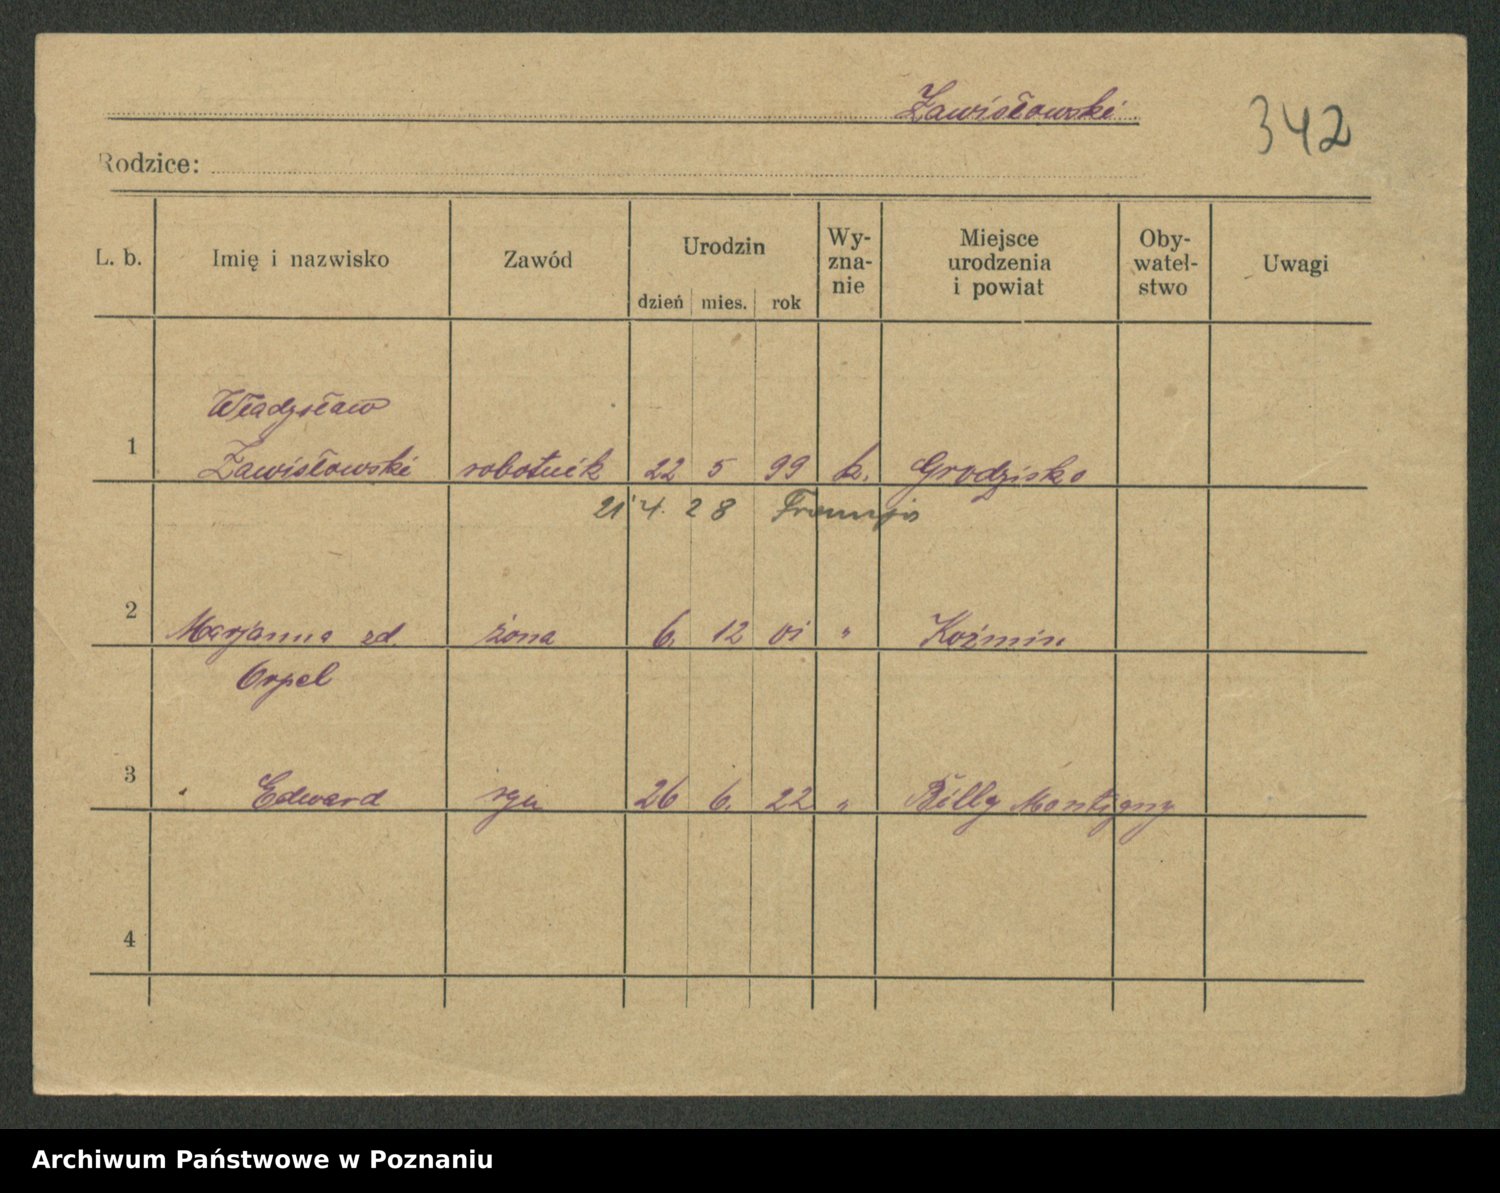 Zawisłowski
342
Rodzice:
L. b. Imię i nazwisko Zawód Urodzin dzień mies. rok Wy-zna-nie Miejsce urodzenia i powiat Oby-wateł-stwo Uwagi
Władysław
1 Zawisłowski robotnik 22 5 99 k. Grodzisko
21 4. 28 Francja
2 Marjanna zd. żona 6. 12 01 " Koźmin
Orpel
3 Edward syn 26 6. 22 " Billy Montigny
4
Archiwum Państwowe w Poznaniu